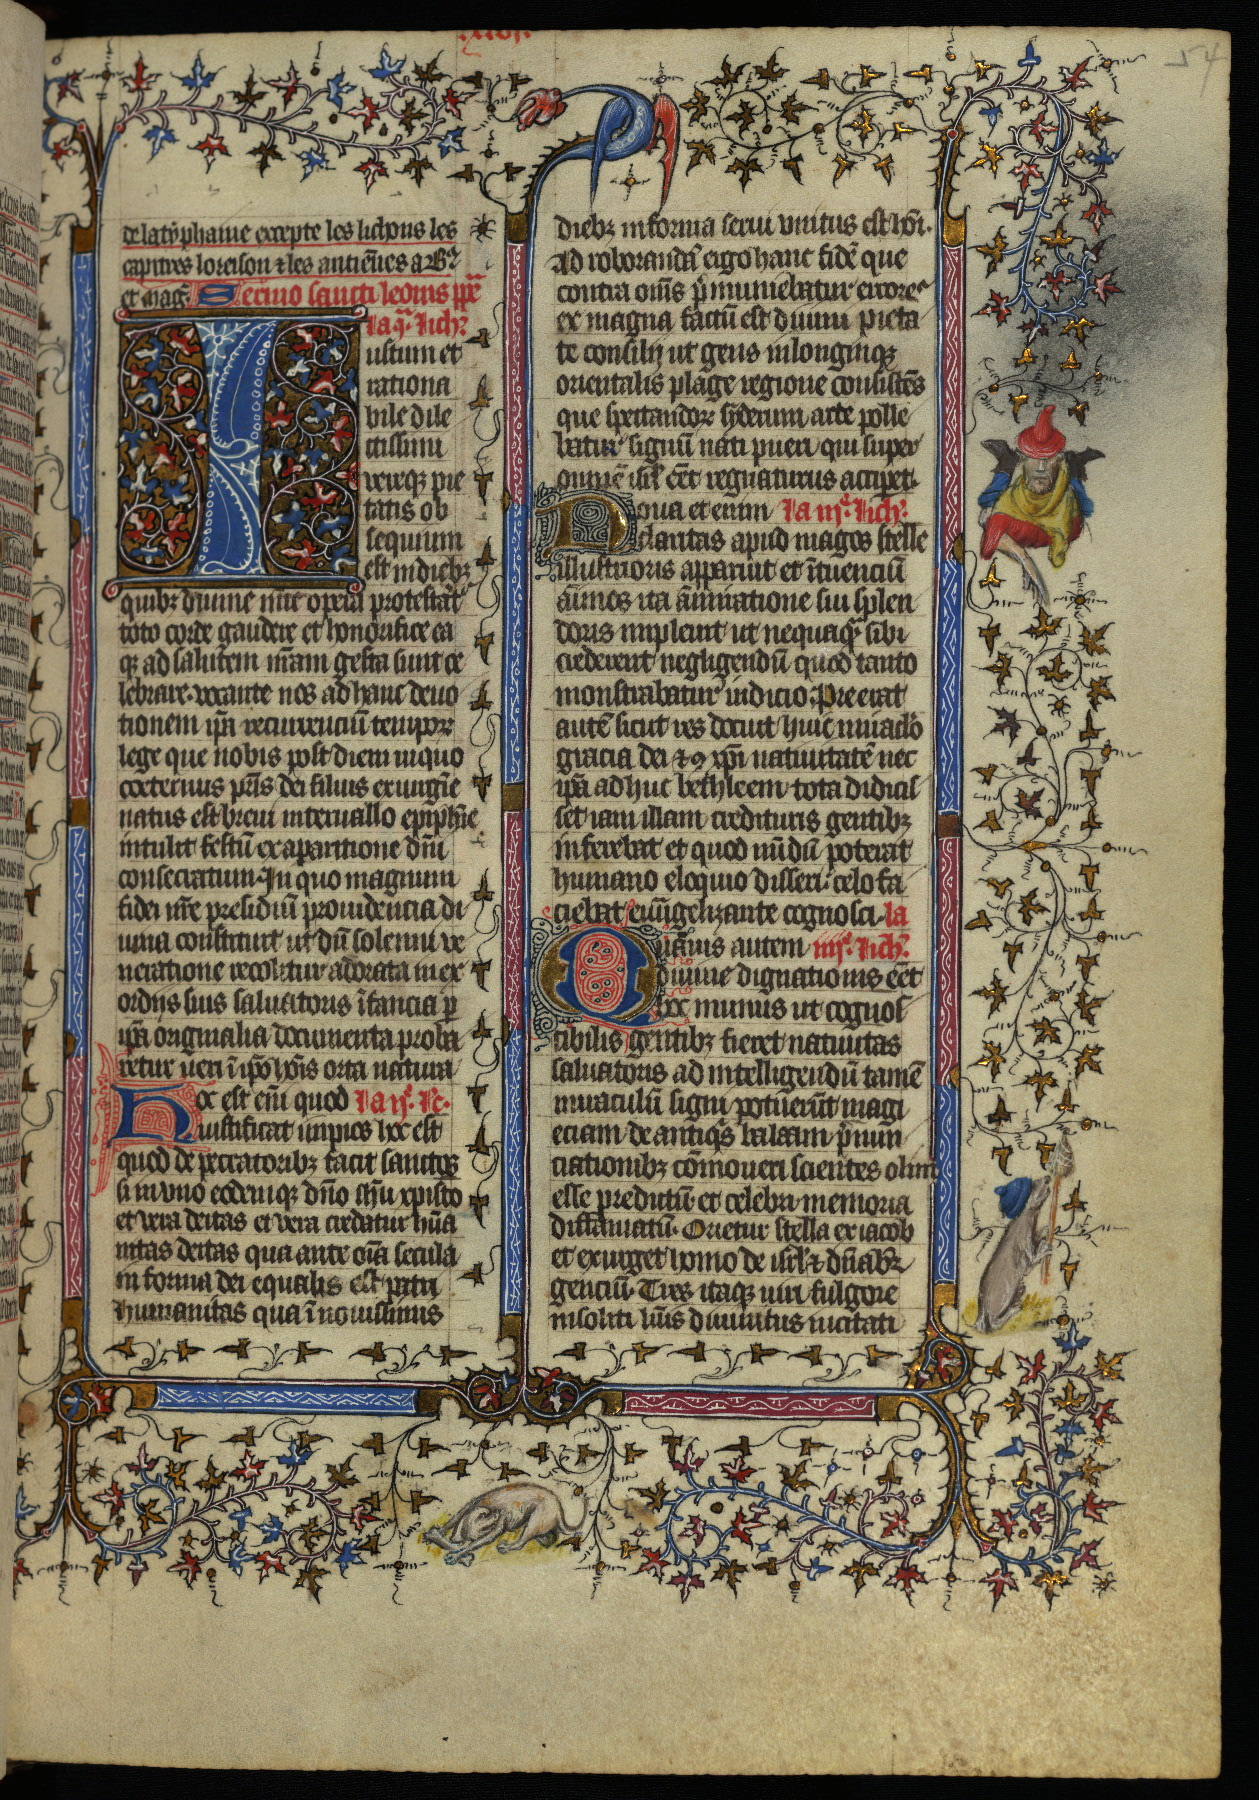 54
de latyphaine excepte les lichons les
capitres loreison & les antienes a Bn̄
et mag. Sermo sancti leonis ppē
la .j. lich.
Iustum et
rationa
bile dile
ctissimi
vereqꝫ pie
tatis ob
sequium
est in diebꝫ
quibꝫ divine mīe opera protestāt̄
toto corde gaudere et honorifice ea
qꝫ ad salutem nr̄am gesta sunt ce
lebrare. vocante nos ad hanc devo
tionem ip̄a recurrenciū tempoꝝ
lege que nobis post diem in quo
coeternus pr̄is dei filius ex virgīe
natus est brevi intervallo epiphīe
intulit festū ex aparitione dn̄i
consecratum. In quo magnum
fidei nr̄e presidiū providencia di
vina constituit ut dū solenni ve
neratione recolitur adorata in ex
ordiis suis salvatoris īfancia p̄
ip̄a originalia documenta proba
retur veri ī ip̄o hoīs orta natura
Hoc est eni quod la .ij. lc̄.
iustificat impios hoc est
quod de peccatoribꝫ facit sanctos
si in uno eodemqꝫ dn̄o ihū xpisto
et vera deitas et vera credatur hūa
nitas deitas qua ante oīa secula
in forma dei equalis est patri
humanitas qua ī novissimis
diebꝫ in forma servi unitus est hōi.
Ad roborandā ergo hanc fidē que
contra om̄s p̄muniebatur errores
ex magna factū est divini pieta
te consilij ut gens in longinqꝫ
orientalis plage regione consistēs
que spectandoꝝ syderum arte polle
batur signū nati pueri qui super
omnē isrl̄ eēt regnaturus accipet.
Nova et enim la .iij. lich.
claritas apud magos stelle
illustrioris apparuit et ītuenciū
aīmos ita āmiratione sui splen
doris impleuit ut nequaqꝫ sibi
crederent negligendū quod tanto
monstrabatur indicio. Preerat
autē sicut res docuit huic miraclo
gracia dei & ꝯ xp̄i nativitatē nec
ip̄a adhuc bethleem tota didicis
set iam illam credituris gentibꝫ
inferebat et quod nūdū poterat
humano eloquio disseri. celo fa
ciebat euīgelizante cognosci. la
Quāvis autem .iiij. lich.
divine dignationis eēt
hoc munus ut cognos
cibilis gentibꝫ fieret nativitas
salvatoris ad intelligendū tamē
miraculū signi potuerūt magi
eciam de antiqs̄ balaam p̄nun
ciationibꝫ cōmoveri scientes olim
esse predictū et celebri memoria
diffāmatū. Orietur stella ex iacob
et exurget homo de isrl̄ & dn̄abr̄
genciū. Tres itaqꝫ viri fulgore
insoliti huiꝰ divinitus incitati